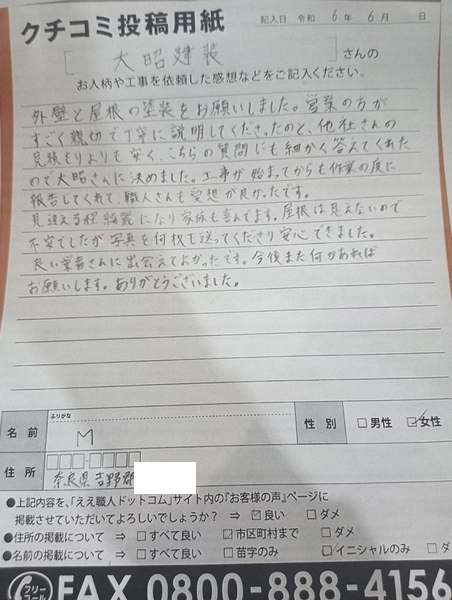 クチコミ投稿用紙
記入日 令和 6年 6月 日
[ 大昭建装 ]さんの
お人柄や工事を依頼した感想などをご記入ください。
外壁と屋根の塗装をお願いしました。営業の方が
すごく親切で丁寧に説明してくださったのと、他社さんの
見積もりよりも安く、こちらの質問にも細かく答えてくれた
ので大昭さんに決めました。工事が始まってからも作業の度に
報告してくれて、職人さんも愛想が良かったです。
見違える程綺麗になり家族も喜んでます。屋根は見えないので
不安でしたが写真を何枚も送ってくださり安心できました。
良い業者さんに出会えてよかったです。今後また何かあれば
お願いします。ありがとうございました。
ふりがな
名前 M 性別 □男性 ☑女性
住所 奈良県吉野郡
●上記内容を、「ええ職人ドットコム」サイト内の『お客様の声』ページに
掲載させていただいてよろしいでしょうか? ⇒ ☑良い □ダメ
●住所の掲載について ⇒ □すべて良い ☑市区町村まで □ダメ
●名前の掲載について ⇒ □すべて良い □苗字のみ ☑イニシャルのみ □ダ
フリーコール FAX 0800-888-4156